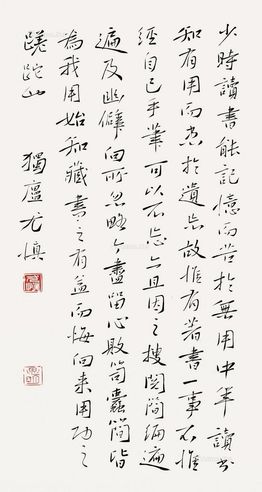 少時讀書能記憶而苦於無用中年讀書
知有用而苦於遺忘故惟有著書一事不惟
經自己手筆可以不忘亦且因之搜閱簡編遍
遍及幽僻向所忽略今盡留心敗笥蠹簡皆
為我用始知藏書之有益而悔向來用功之
蹉跎也 獨廬尤慎